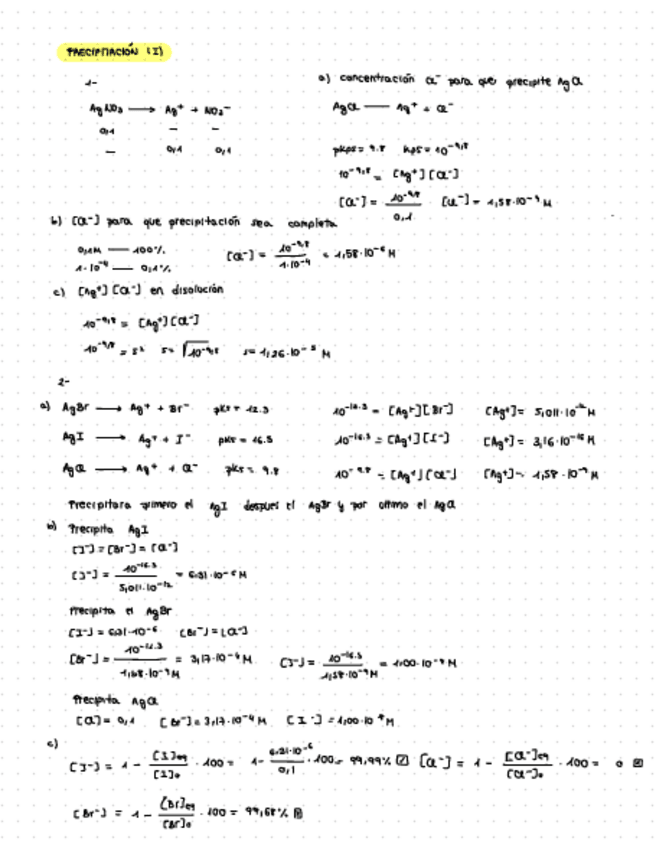 PRECIPITACIÓN (I)
1-
AgNO₃ ⟶ Ag⁺ + NO₃⁻
0,1 – –
– 0,1 0,1
a) concentración Cl⁻ para que precipite AgCl
AgCl — Ag⁺ + Cl⁻
pKps = 9.8 Kps = 10⁻⁹,⁸
10⁻⁹,⁸ = [Ag⁺][Cl⁻]
[Cl⁻] = 10⁻⁹,⁸ / 0,1 [Cl⁻] = 1,58·10⁻⁹ M
b) [Cl⁻] para que precipitación sea completa
0,1M — 100%
1·10⁻⁴ — 0,1%
[Cl⁻] = 10⁻⁹,⁸ / 1·10⁻⁴ = 1,58·10⁻⁶ M
c) [Ag⁺][Cl⁻] en disolución
10⁻⁹,⁸ = [Ag⁺][Cl⁻]
10⁻⁹,⁸ = s² s = √10⁻⁹,⁸ s = 1,26·10⁻⁵ M
2-
a) AgBr ⟶ Ag⁺ + Br⁻ pKs = 12.3 [Ag⁺][Br⁻] [Ag⁺] = 5,011·10⁻¹² M
AgI ⟶ Ag⁺ + I⁻ pKs = 16.3 10⁻¹⁶·³ = [Ag⁺][I⁻] [Ag⁺] = 3,16·10⁻¹⁶ M
AgCl ⟶ Ag⁺ + Cl⁻ pKs = 9.8 10⁻⁹·⁸ = [Ag⁺][Cl⁻] [Ag⁺] = 1,58·10⁻⁹ M
Precipitara primero el AgI despues el AgBr y por ultimo el AgCl
b) Precipita AgI
[I⁻] = [Br⁻] = [Cl⁻]
[I⁻] = 10⁻¹⁶·³ / 5,011·10⁻¹² = 6,31·10⁻⁶ M
Precipita el AgBr
[I⁻] = 6,31·10⁻⁶ [Br⁻] = [Cl⁻]
[Br⁻] = 3,17·10⁻⁴ M [I⁻] = 10⁻¹⁶·³ / 1,58·10⁻⁹ M
Precipita AgCl
[Cl] = 0,1 [Br⁻] = 3,17·10⁻⁴ M [I⁻] = 1,00·10
c)
[I⁻] = 1 − [I]eq / [I]₀ · 100 = 1 − 6,31·10⁻⁶ / 0,1 · 100 = 99,99% [Cl⁻] = 1 − [Cl⁻]eq / [Cl⁻]₀ · 100 = 0
[Br⁻] = 1 − [Br]eq / [Br]₀ · 100 = 99,68%